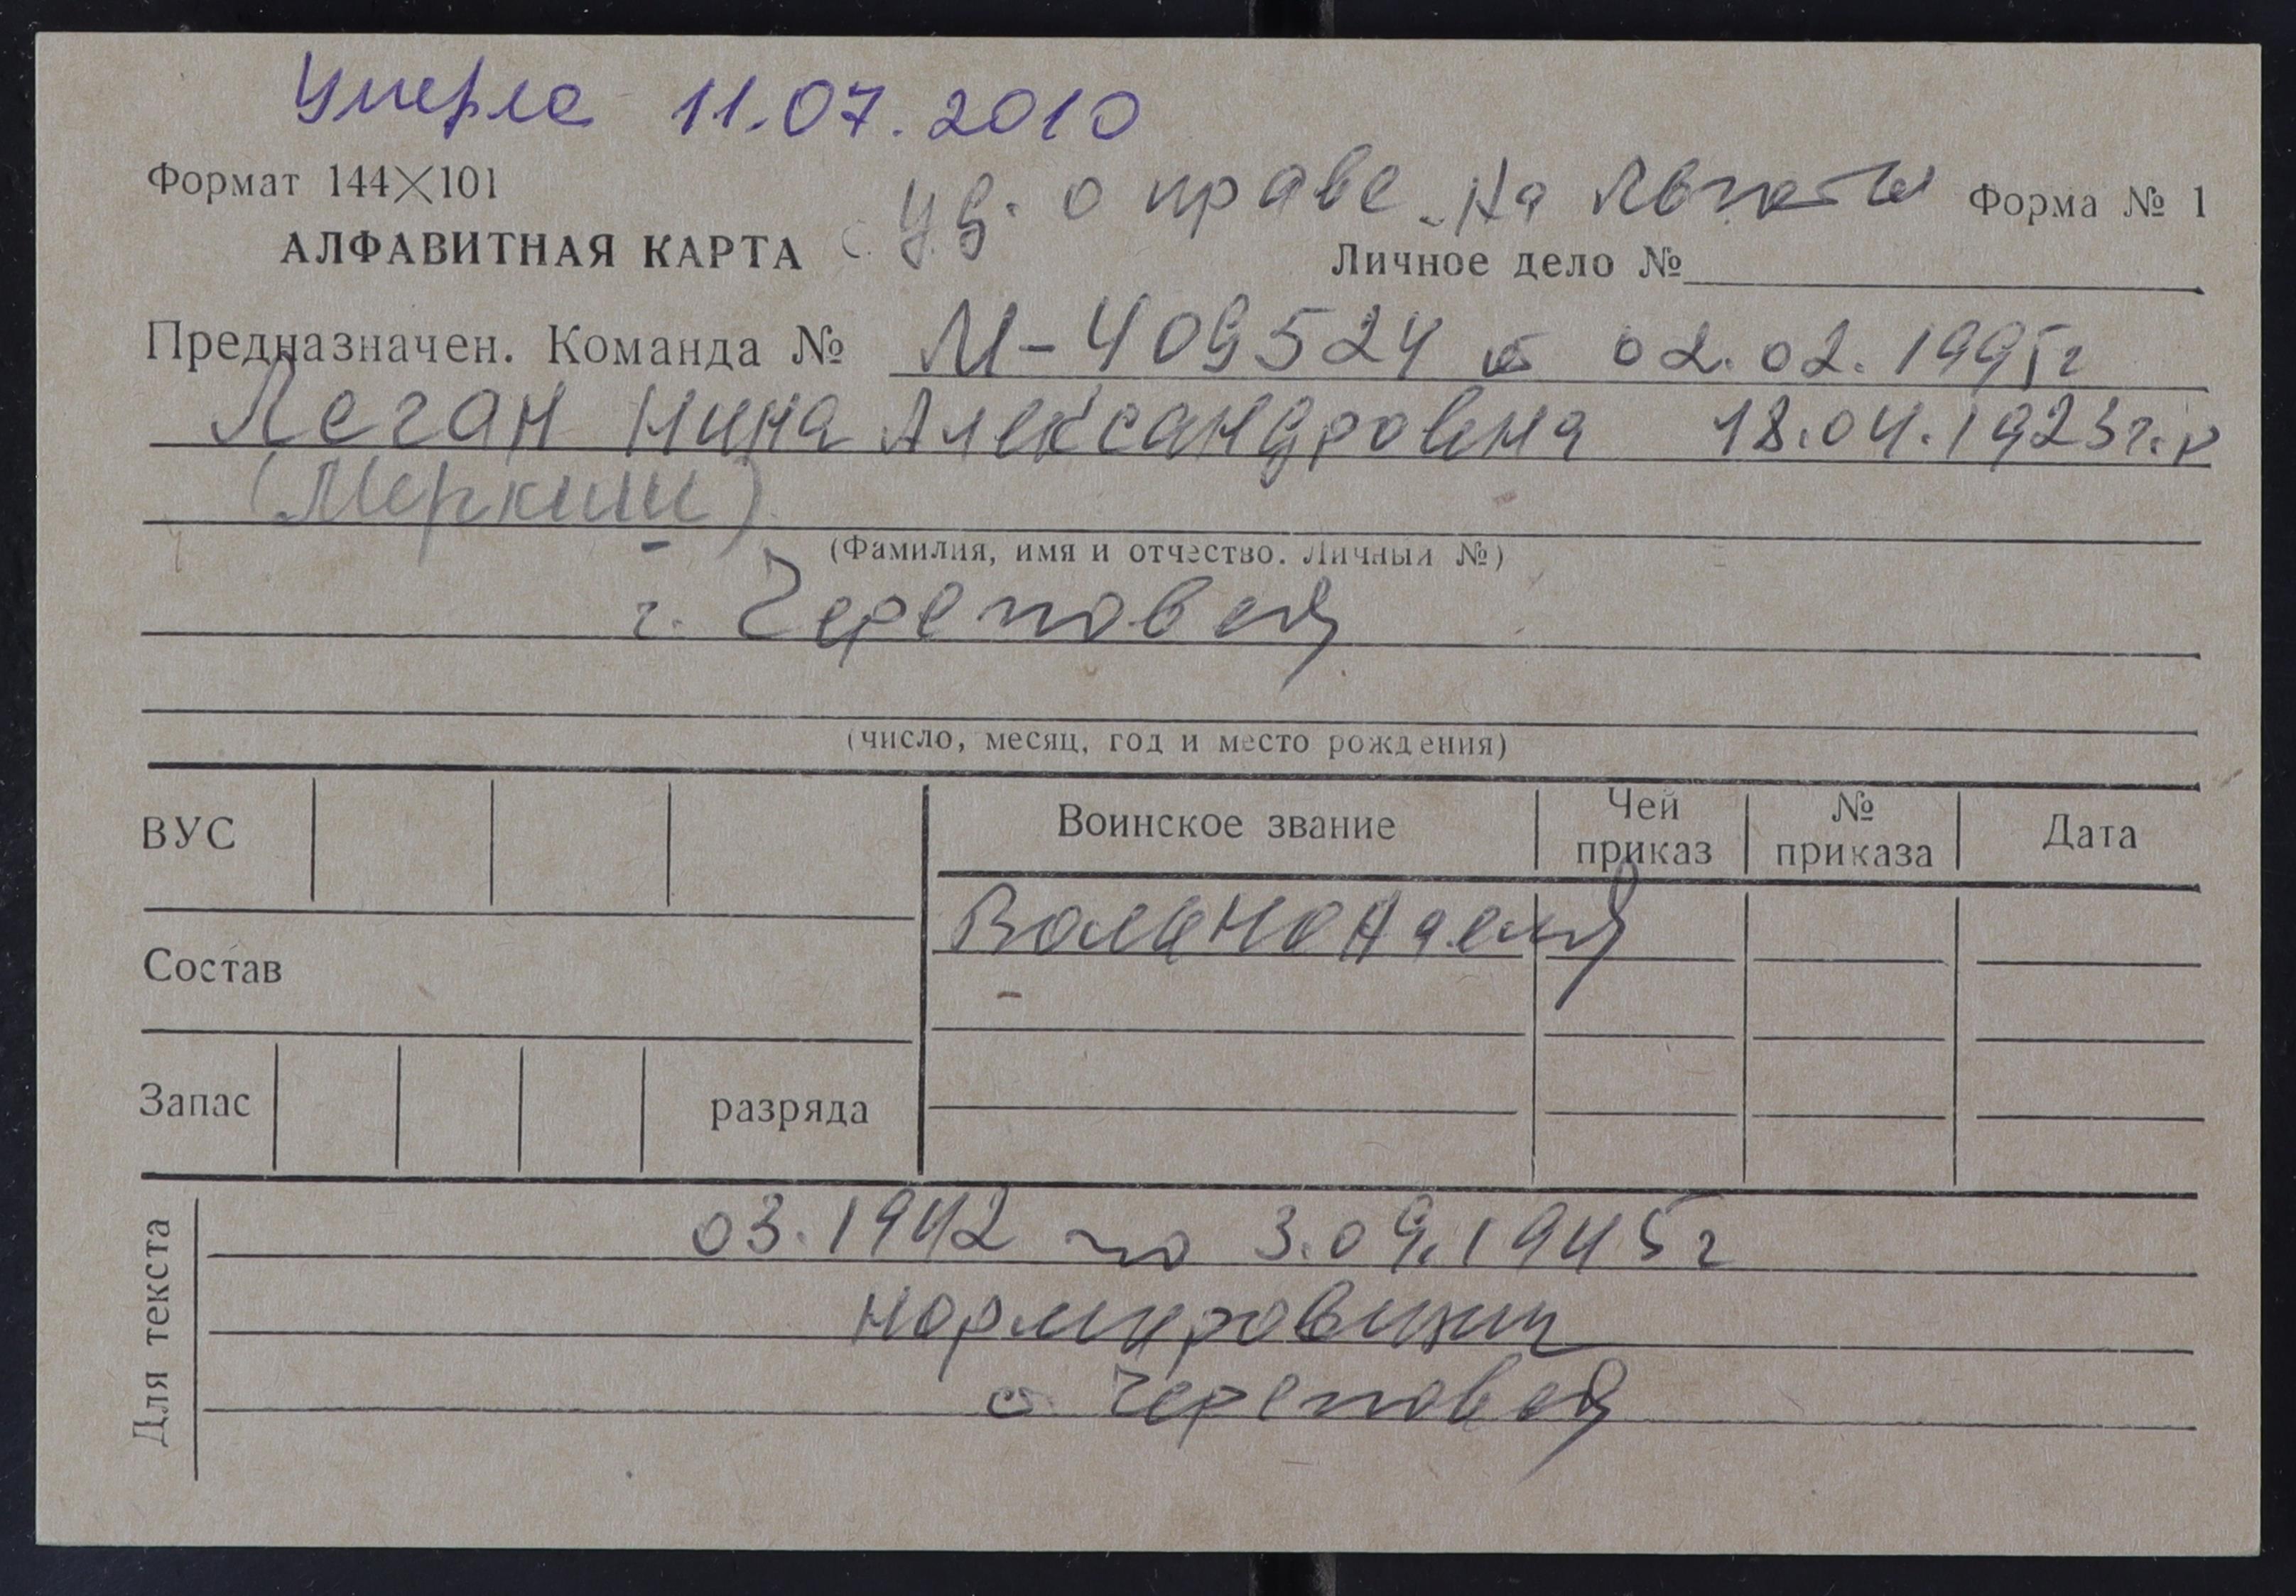 Умерла 11.07.2010
Формат 144×101
уд. о праве на льготы Форма № 1
АЛФАВИТНАЯ КАРТА Личное дело №
Предназначен. Команда № М-409524 от 02.02.1995г
Леган Нина Александровна 18.04.1923г.р
(Меркиш)
(Фамилия, имя и отчество. Личный №)
г. Череповец
(число, месяц, год и место рождения)
ВУС Воинское звание Чей приказ № приказа Дата
Вольнонаемн
Состав
Запас разряда
Для текста
03.1942 по 3.09.1945г
нормировщиц
Череповец